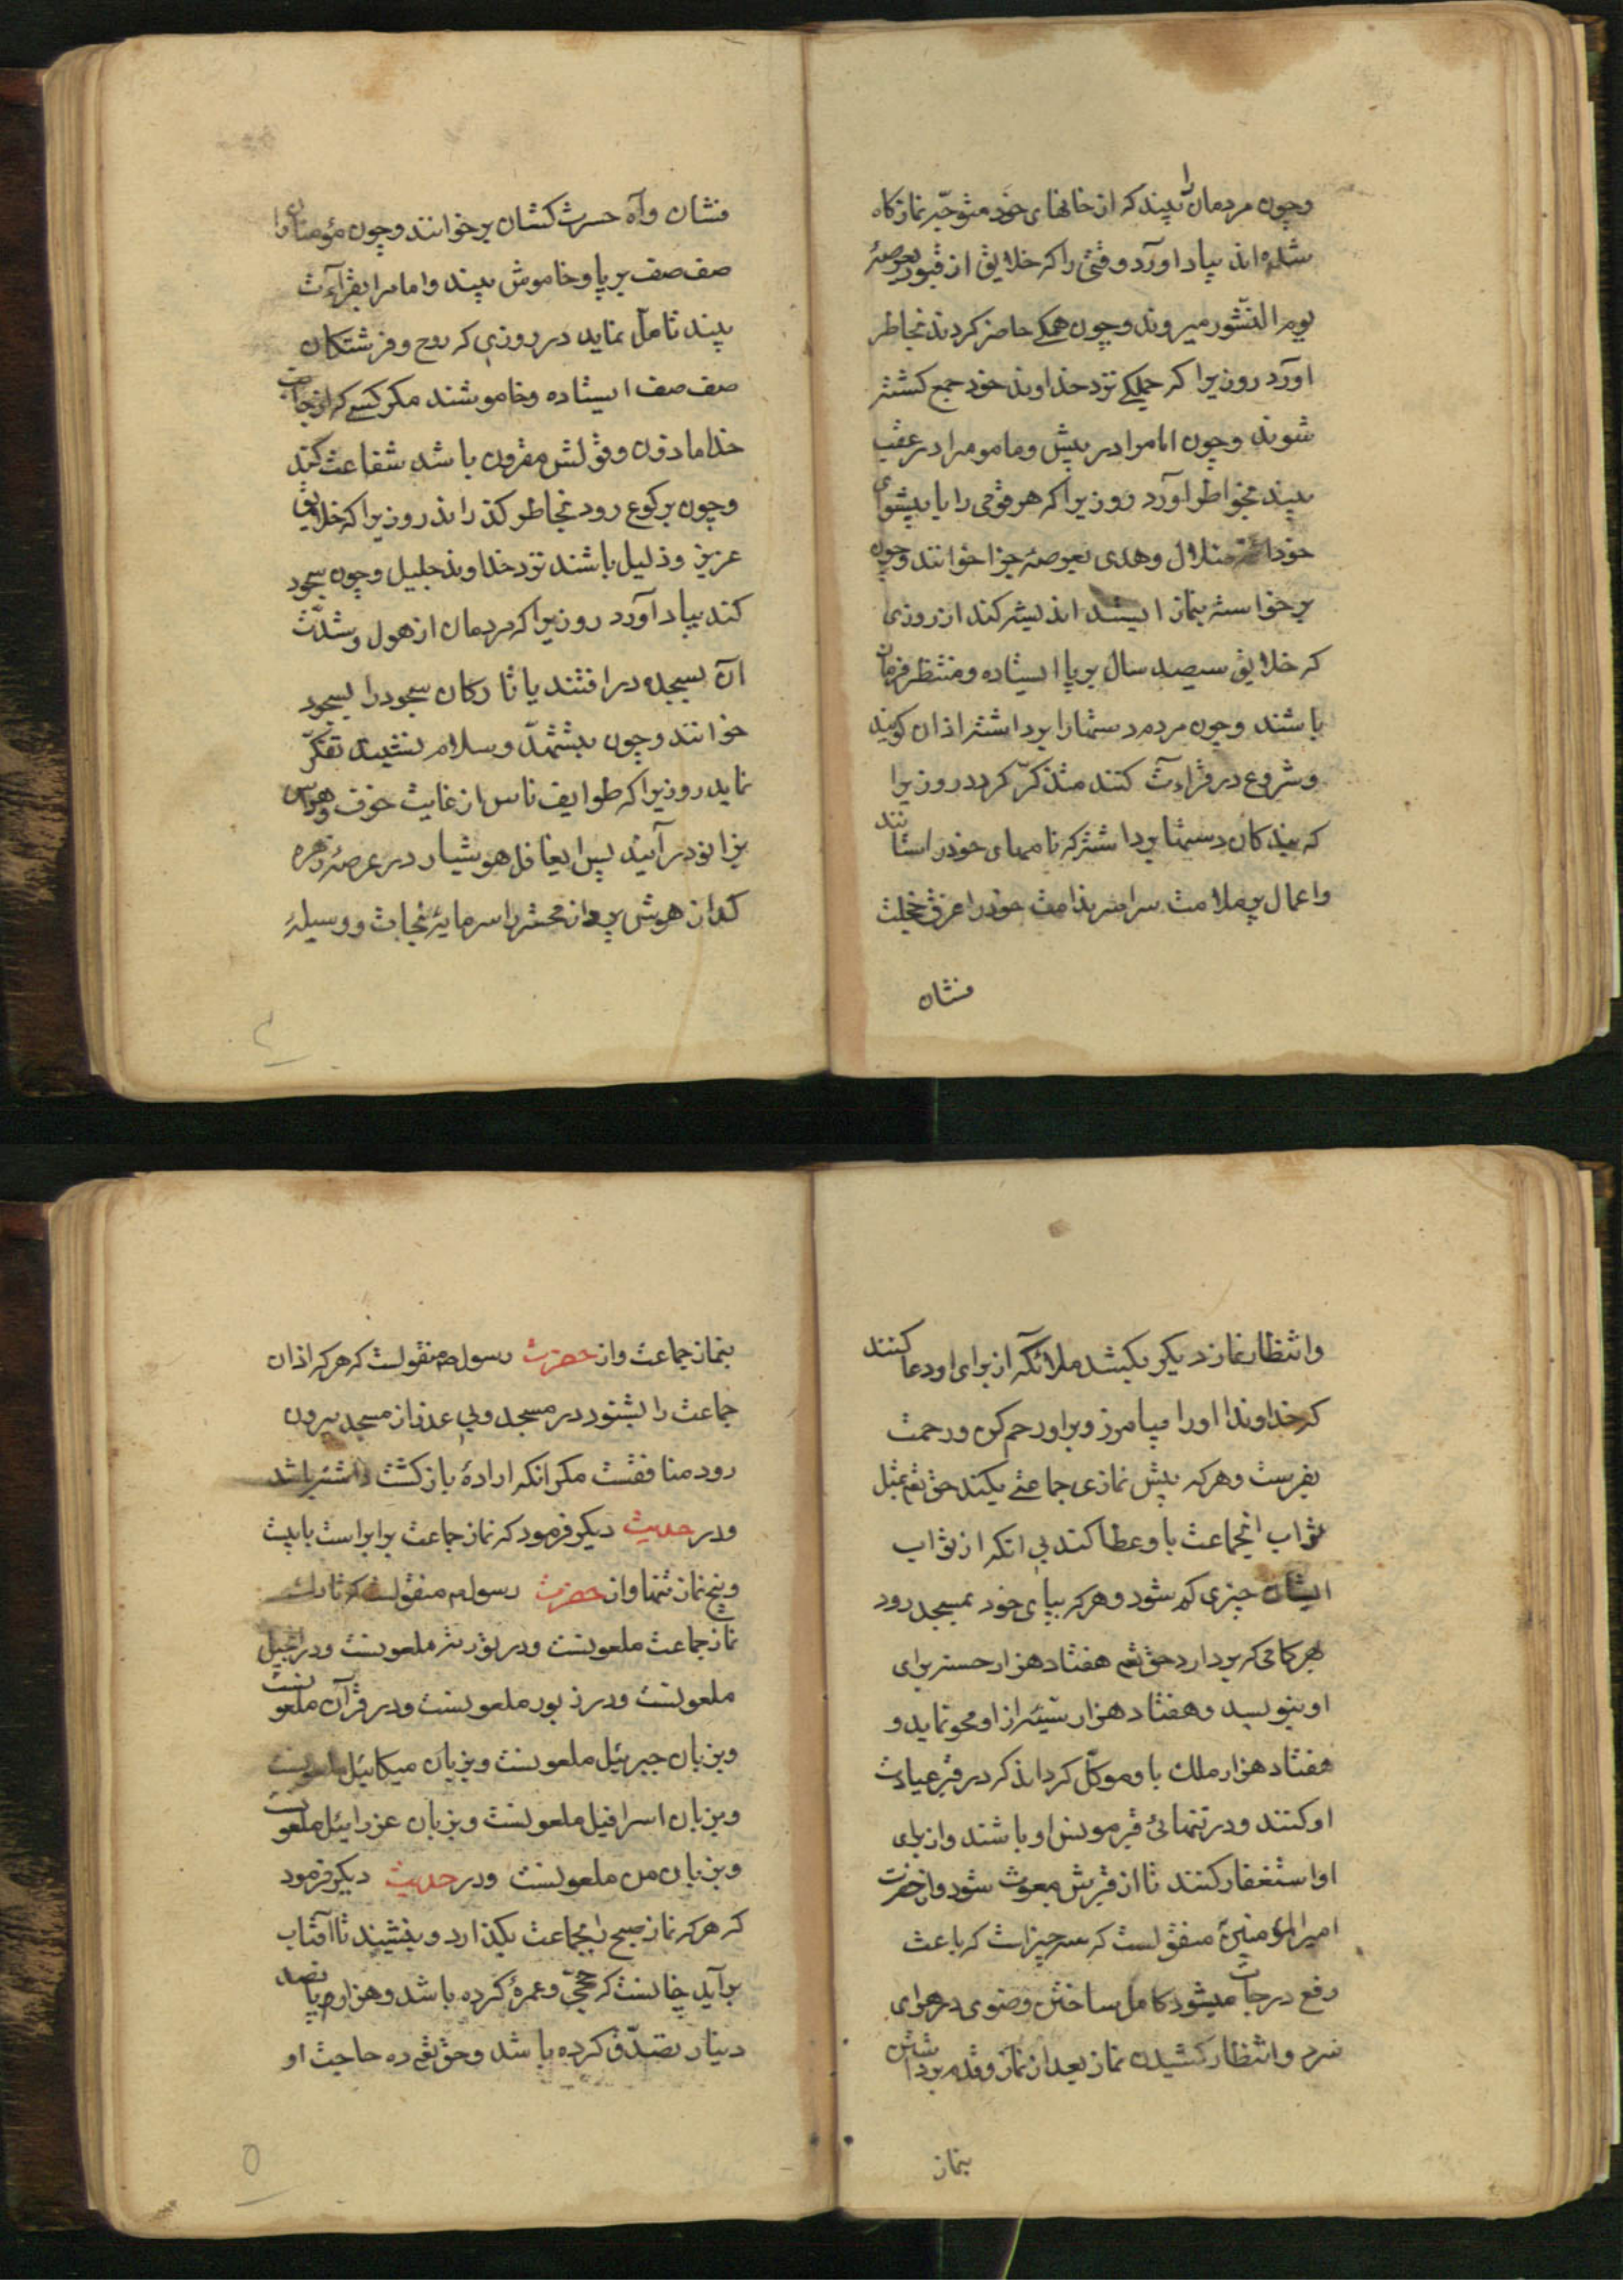 وچون مردمان را بیند که از خانهای خود متوجّه نمازکاه
شده اند بیاد اورد وقتی را که خلایق از قبور بعرصهٔ
یوم النّشور میروند وچون همکی حاضر کردند بخاطر
اورد روزیرا که جملکی نزد خداوند خود جمع کشته
شوند وچون امام را در پیش وماموم را در عقب
بیند بخواطر اورد روزیرا که هر قومی را با پیشوای
خود ضلال وهدی بعرصهٔ جزا خوانند وچون
برخواسته بنماز ایستد اندیشه کند از روزی
که خلایق سیصد سال بر پا ایستاده ومنتظر فرمان
باشند وچون مردم دستها را برداشته اذان کویند
وشروع در قراءت کنند متذکّر کردد روزیرا
که بندکان دستها برداشته که نامهای خود را ستانند
واعمال پر ملامت سراسر ندامت خود را عرق خجلت
فشان
فشان وآه حسرت کشان برخوانند وچون مؤمنان را
صف صف بر پا وخاموش بیند وامام را بقراءت
بیند تامل نماید در روزی که روح وفرشتکان
صف صف ایستاده وخاموشند مکر کسی که از جانب
خدا ماذون وقولش مقرون باشد شفاعت کند
وچون برکوع رود بخاطر کذراند روزیرا که خلایق
عزیز وذلیل باشند نزد خداوند جلیل وچون سجود
کند بیاد آورد روزیرا که مردمان از هول وشدّت
آن بسجده در افتند یا تارکان سجود را بسجود
خوانند وچون بتشهّد وسلام نشیند تفکّر
نماید روزیرا که طوایف ناس از غایت خوف وهراس
بزانو در آیند پس ایغافل هوشیار در عرصهٔ زهره
کداز هوش پرداز محشر را سرمایهٔ نجات ووسیلهٔ
وانتظار نماز دیکر بکشد ملائکه از برای او دعا کنند
که خداوندا اورا بیامرز وبراو رحم کن ورحمت
بفرست وهرکه پیش نمازی جماعتی بکند حق تعم مثل
ثواب انجماعت باو عطا کند بی انکه از ثواب
ایشان چیزی کم شود وهرکه بپای خود بمسجد رود
هر کامی که بردارد حق تعم هفتاد هزار حسنه برای
او بنویسد وهفتاد هزار سیّئه از او محو نماید و
هفتاد هزار ملک باو موکّل کرداند که در قبر عیادت
او کنند ودر تنهائی قبر مونس او باشند واز برای
او استغفار کنند تا از قبرش مبعوث شود واز حضرت
امیرالمؤمنین منقولست که سه چیز است که باعث
رفع درجات میشود کامل ساختن وضوی در هوای
سرد وانتظار کشیدن نماز بعد از نماز وقدم برداشتن
بنماز
بنماز جماعت واز حضرت رسول ص منقولست که هرکه اذان
جماعت را بشنود در مسجد وبی عذر از مسجد بیرون
رود منافقست مکر انکه ارادهٔ بازکشت داشته باشد
ودر حدیث دیکر فرمود که نماز جماعت برابر است با بیست
وپنج نماز تنها واز حضرت رسول ص منقولست که تارک
نماز جماعت ملعونست ودر توریة ملعونست ودر انجیل
ملعونست ودر زبور ملعونست ودر قرآن ملعونست
وبزبان جبرئیل ملعونست وبزبان میکائیل ملعونست
وبزبان اسرافیل ملعونست وبزبان عزرائیل ملعونست
وبزبان من ملعونست ودر حدیث دیکر فرمود
که هرکه نماز صبح را بجماعت بکذارد وبنشیند تا آفتاب
برآید چنانست که حجّی وعمرهٔ کرده باشد وهزار وپانصد
دینار تصدّق کرده باشد وحق تعم ده حاجت او